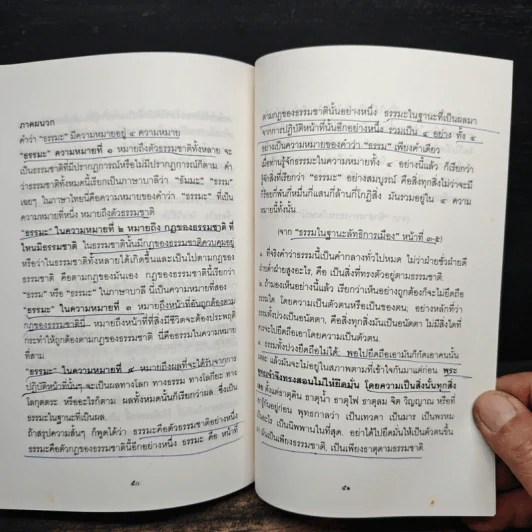 ภาคผนวก
คำว่า "ธรรมะ" มีความหมายอยู่ ๔ ความหมาย
"ธรรมะ" ความหมายที่ ๑ หมายถึงตัวธรรมชาติทั้งหลาย จะ
เป็นธรรมชาติที่มีปรากฏการณ์หรือไม่มีปรากฏการณ์ก็ตาม คำ
ว่าธรรมชาติทั้งหมดนี้เรียกเป็นภาษาบาลีว่า "ธัมมะ" "ธรรม"
เฉยๆ ในภาษาไทยนี้คือความหมายของคำว่า "ธรรมะ" ที่เป็น
ความหมายที่หนึ่ง หมายถึงตัวธรรมชาติ
"ธรรมะ" ในความหมายที่ ๒ หมายถึง กฎของธรรมชาติ ที่
ไหนมีธรรมชาติ ในธรรมชาตินั้นมีกฎของธรรมชาติควบคุมอยู่
หรือว่าในธรรมชาติทั้งหลายได้เกิดขึ้นและเป็นไปตามกฎของ
ธรรมชาติ คือตามกฎของมันเอง กฎของธรรมชาตินี้เรียกว่า
"ธรรม" หรือ "ธรรมะ" ในภาษาบาลี นี่เป็นความหมายที่สอง
"ธรรมะ" ในความหมายที่ ๓ หมายถึงหน้าที่อันถูกต้องตาม
กฎของธรรมชาตินี้ หมายถึงหน้าที่ที่สิ่งมีชีวิตจะต้องประพฤติ
กระทำให้ถูกต้องตามกฎของธรรมชาติ นี่คือธรรมในความหมาย
ที่สาม
"ธรรมะ" ในความหมายที่ ๔ หมายถึงผลที่จะได้รับจากการ
ปฏิบัติหน้าที่นั้นๆ จะเป็นผลทางโลก ทางธรรม ทางโลกียะ ทาง
โลกุตตระ หรืออะไรก็ตาม ผลทั้งหมดนั้นก็เรียกว่าผล ซึ่งเป็น
ธรรมะในฐานะที่เป็นผล
ถ้าสรุปความสั้นๆ ก็พูดได้ว่า ธรรมะคือตัวธรรมชาติอย่างหนึ่ง
ธรรมะคือตัวกฎของธรรมชาตินี้อีกอย่างหนึ่ง ธรรมะ คือ หน้าที่
๕๐
ตามกฎของธรรมชาตินั้นอย่างหนึ่ง ธรรมะในฐานะที่เป็นผลมา
จากการปฏิบัติหน้าที่นั้นอีกอย่างหนึ่ง รวมเป็น ๔ อย่าง ทั้ง ๔
อย่างเป็นความหมายของคำว่า "ธรรม" เพียงคำเดียว
เมื่อท่านรู้จักธรรมะในความหมายทั้ง ๔ อย่างนี้แล้ว ก็เรียกว่า
รู้จักสิ่งที่เรียกว่า "ธรรมะ" อย่างสมบูรณ์ คือสิ่งทุกสิ่งไม่ว่าจะมี
กี่ร้อยกี่พันกี่หมื่นกี่แสนกี่ล้านกี่โกฏิสิ่ง มันรวมอยู่ใน ๔ ความ
หมายนี้ทั้งนั้น
(จาก "ธรรมในฐานะลัทธิการเมือง" หน้าที่ ๓-๕)
ที่จริงคำว่าธรรมนี้เป็นคำกลางทั่วไปหมด ไม่ว่าฝ่ายชั่วฝ่ายดี
ฝ่ายต่ำฝ่ายสูงอะไร, คือ เป็นสิ่งที่ทรงตัวอยู่ตามธรรมชาติ.
ถ้ามองเห็นอย่างนี้แล้ว เรียกว่าเห็นอย่างถูกต้องก็จะไม่ยึดถือ
ธรรมใด โดยความเป็นตัวตนหรือเป็นของตน; อย่างหลักที่ว่า
ธรรมทั้งปวงเป็นอนัตตา, คือสิ่งทุกสิ่งมันเป็นอนัตตา ไม่มีสิ่งใดที่
ควรจะไปยึดถือเอาโดยความเป็นตัวตน.
ธรรมทั้งปวงยึดถือไม่ได้, พอไปยึดถือเอามันก็กัดเอาคนนั้น
แหละ แล้วมันจะไม่อยู่ในสภาพตามที่เข้าใจกันมาแต่ก่อน; พระ
พุทธเจ้าจึงทรงสอนไม่ให้ยึดมั่น โดยความเป็นสิ่งนั้นทุกสิ่ง
เลย ตั้งแต่ธาตุดิน ธาตุน้ำ ธาตุไฟ ธาตุลม จิต วิญญาณ หรือที่
เขารู้กันอยู่ก่อน พุทธกาลว่า เป็นเทวดา เป็นมาร เป็นพรหม
เป็นอะไร เป็นนิพพานในที่สุด. อย่าได้ไปยึดมั่นให้เป็นตัวตนขึ้น
มา มันเป็นเพียงธรรมชาติ, เป็นเพียงธาตุตามธรรมชาติ
๕๑